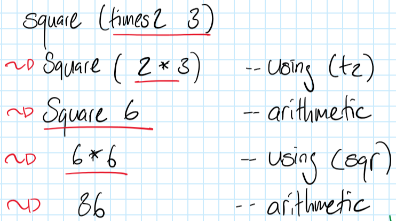 square (times2 3)
~> Square ( 2 * 3) -- using (t2)
~> Square 6 -- arithmetic
~> 6*6 -- using (sqr)
~> 36 -- arithmetic